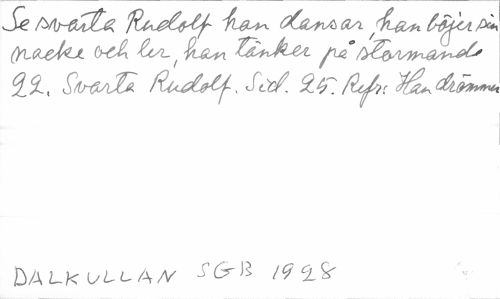 Se svarta Rudolf han dansar, han böjer sin
nacke och ler, han tänker på stormande
22. Svarta Rudolf. Sid. 25. Refr: Han drömmer
DALKULLAN SGB 1928